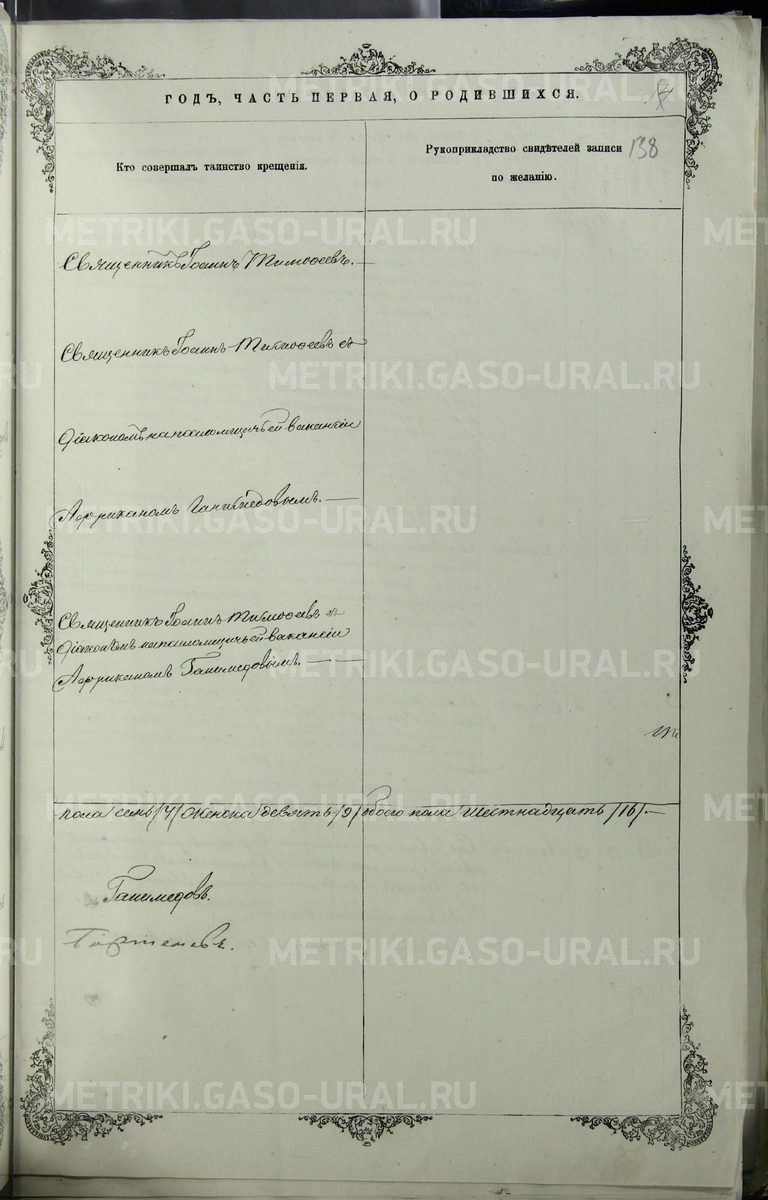 ГОДЪ, ЧАСТЬ ПЕРВАЯ, О РОДИВШИХСЯ.
Кто совершалъ таинство крещенія.
Рукоприкладство свидѣтелей записи
по желанію.
138
Священникъ Іоаннъ Тимофеевъ.
Священникъ Іоаннъ Тимофеевъ съ
Діакономъ на псаломщичьей вакансіи
Африканомъ Ганимедовымъ.
Священникъ Іоаннъ Тимофеевъ съ
Діакономъ на псаломщичьей вакансіи
Африканомъ Ганимедовымъ.
пола семь /7/ женска девять /9/ обоего пола шестнадцать /16/.
Ганимедовъ.
METRIKI.GASO-URAL.RU